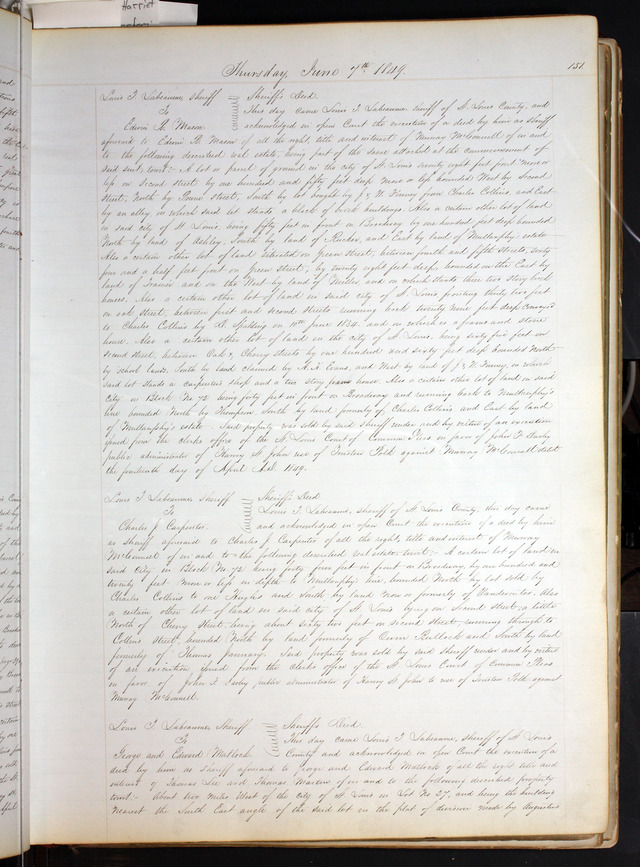 Harriet
Thursday, June 7th 1849.
151
Louis T. Labeaume Sheriff
To
Edwin R. Mason
Sheriff's Deed
This day came Louis T. Labeaume sheriff of St. Louis County, and
acknowledged in open Court the execution of a deed by him as sheriff
aforesaid to Edwin R. Mason of all the right, title and interest of Murray McConnell of in and
to the following described real estate, being part of the same attached at the commencement of
said suit, towit: A lot or parcel of ground in the city of St Louis twenty eight feet front more or
less on Second street by one hundred and fifty feet deep more or less bounded West by Second
Street, North by street, South by lot bought by J & W Finney from Charles Collins, and East
by an alley on which said lot stands a block of brick buildings. Also a certain other lot of land
in said city of St Louis, being fifty feet in front on Broadway by one hundred feet deep bounded
North by land of Ashley, South by land of Rucker, and East by land of Mullanphy's estate
Also a certain other lot of land situated on Green Street, between fourth and fifth streets, sixty
four and a half feet front on Green street, by twenty eight feet deep, bounded on the East by
land of and on the West by land of Miller, and on which stands three two story brick
houses. Also a certain other lot of land in said city of St Louis fronting thirty two feet
on oak street, between first and second streets running back twenty nine feet deep conveyed
to Charles Collins by B. Spalding on 10th June 1834. and on which is a frame and stone
house. Also a certain other lot of land in the city of St Louis, being sixty five feet on
second street, between Oak & Cherry streets by one hundred and sixty feet deep bounded North
by school lands, South by land claimed by A. H. Evans, and West by land of J & W. Finney, on which
said lot stands a carpenters shop and a two story frame house. Also a certain other lot of land in said
city in Block No 72 being forty feet in front on Broadway and running back to Mullanphy's
line bounded North by Thompson South by land formerly of Charles Collins and East by land
of Mullanphy's estate. Said property was sold by said sheriff under and by virtue of an execution
issued from the clerks office of the St Louis Court of Common Pleas in favor of John F Darby
public administrator of Henry St John use of Trusten Polk against Murray McConnell dated
the fourteenth day of April A.D. 1849.
Louis T Labeaume Sheriff
To
Charles J. Carpenter.
Sheriff's Deed
Louis T. Labeaume, sheriff of St Louis County, this day came
and acknowledged in open Court the execution of a deed by him
as sheriff aforesaid to Charles J. Carpenter of all the right, title and interest of Murray
McConnell of in and to the following described real estate towit: A certain lot of land in
said City in Block No 72 being forty five feet in front on Broadway by one hundred and
twenty feet more or less in depth to Mullanphy's line, bounded North by lot sold by
Charles Collins to one Hughes and South by land now or formerly of Vanderventer. Also
a certain other lot of land in said city of St Louis lying on Second street a little
North of Cherry Street having about sixty two feet on Second street, running through to
Collins street, bounded North by land formerly of Bullock and South by land
formerly of Thomas January. Said property was sold by said Sheriff under and by virtue
of an execution issued from the clerks office of the St Louis Court of Common Pleas
in favor of John F. Darby public administrator of Henry St John to use of Trusten Polk against
Murray McConnell.
Louis T Labeaume Sheriff
To
George and Edward Matlock
Sheriff's Deed.
This day came Louis T. Labeaume, sheriff of St Louis
County and acknowledged in open Court the execution of a
deed by him as Sheriff aforesaid to George and Edward Matlock of all the right title and
interest of Lee and Thomas Marten of in and to the following described property
towit:- About two miles West of the city of St Louis in Lot No 27, and being the building
nearest the South East angle of the said lot in the plat of division made by Augustus